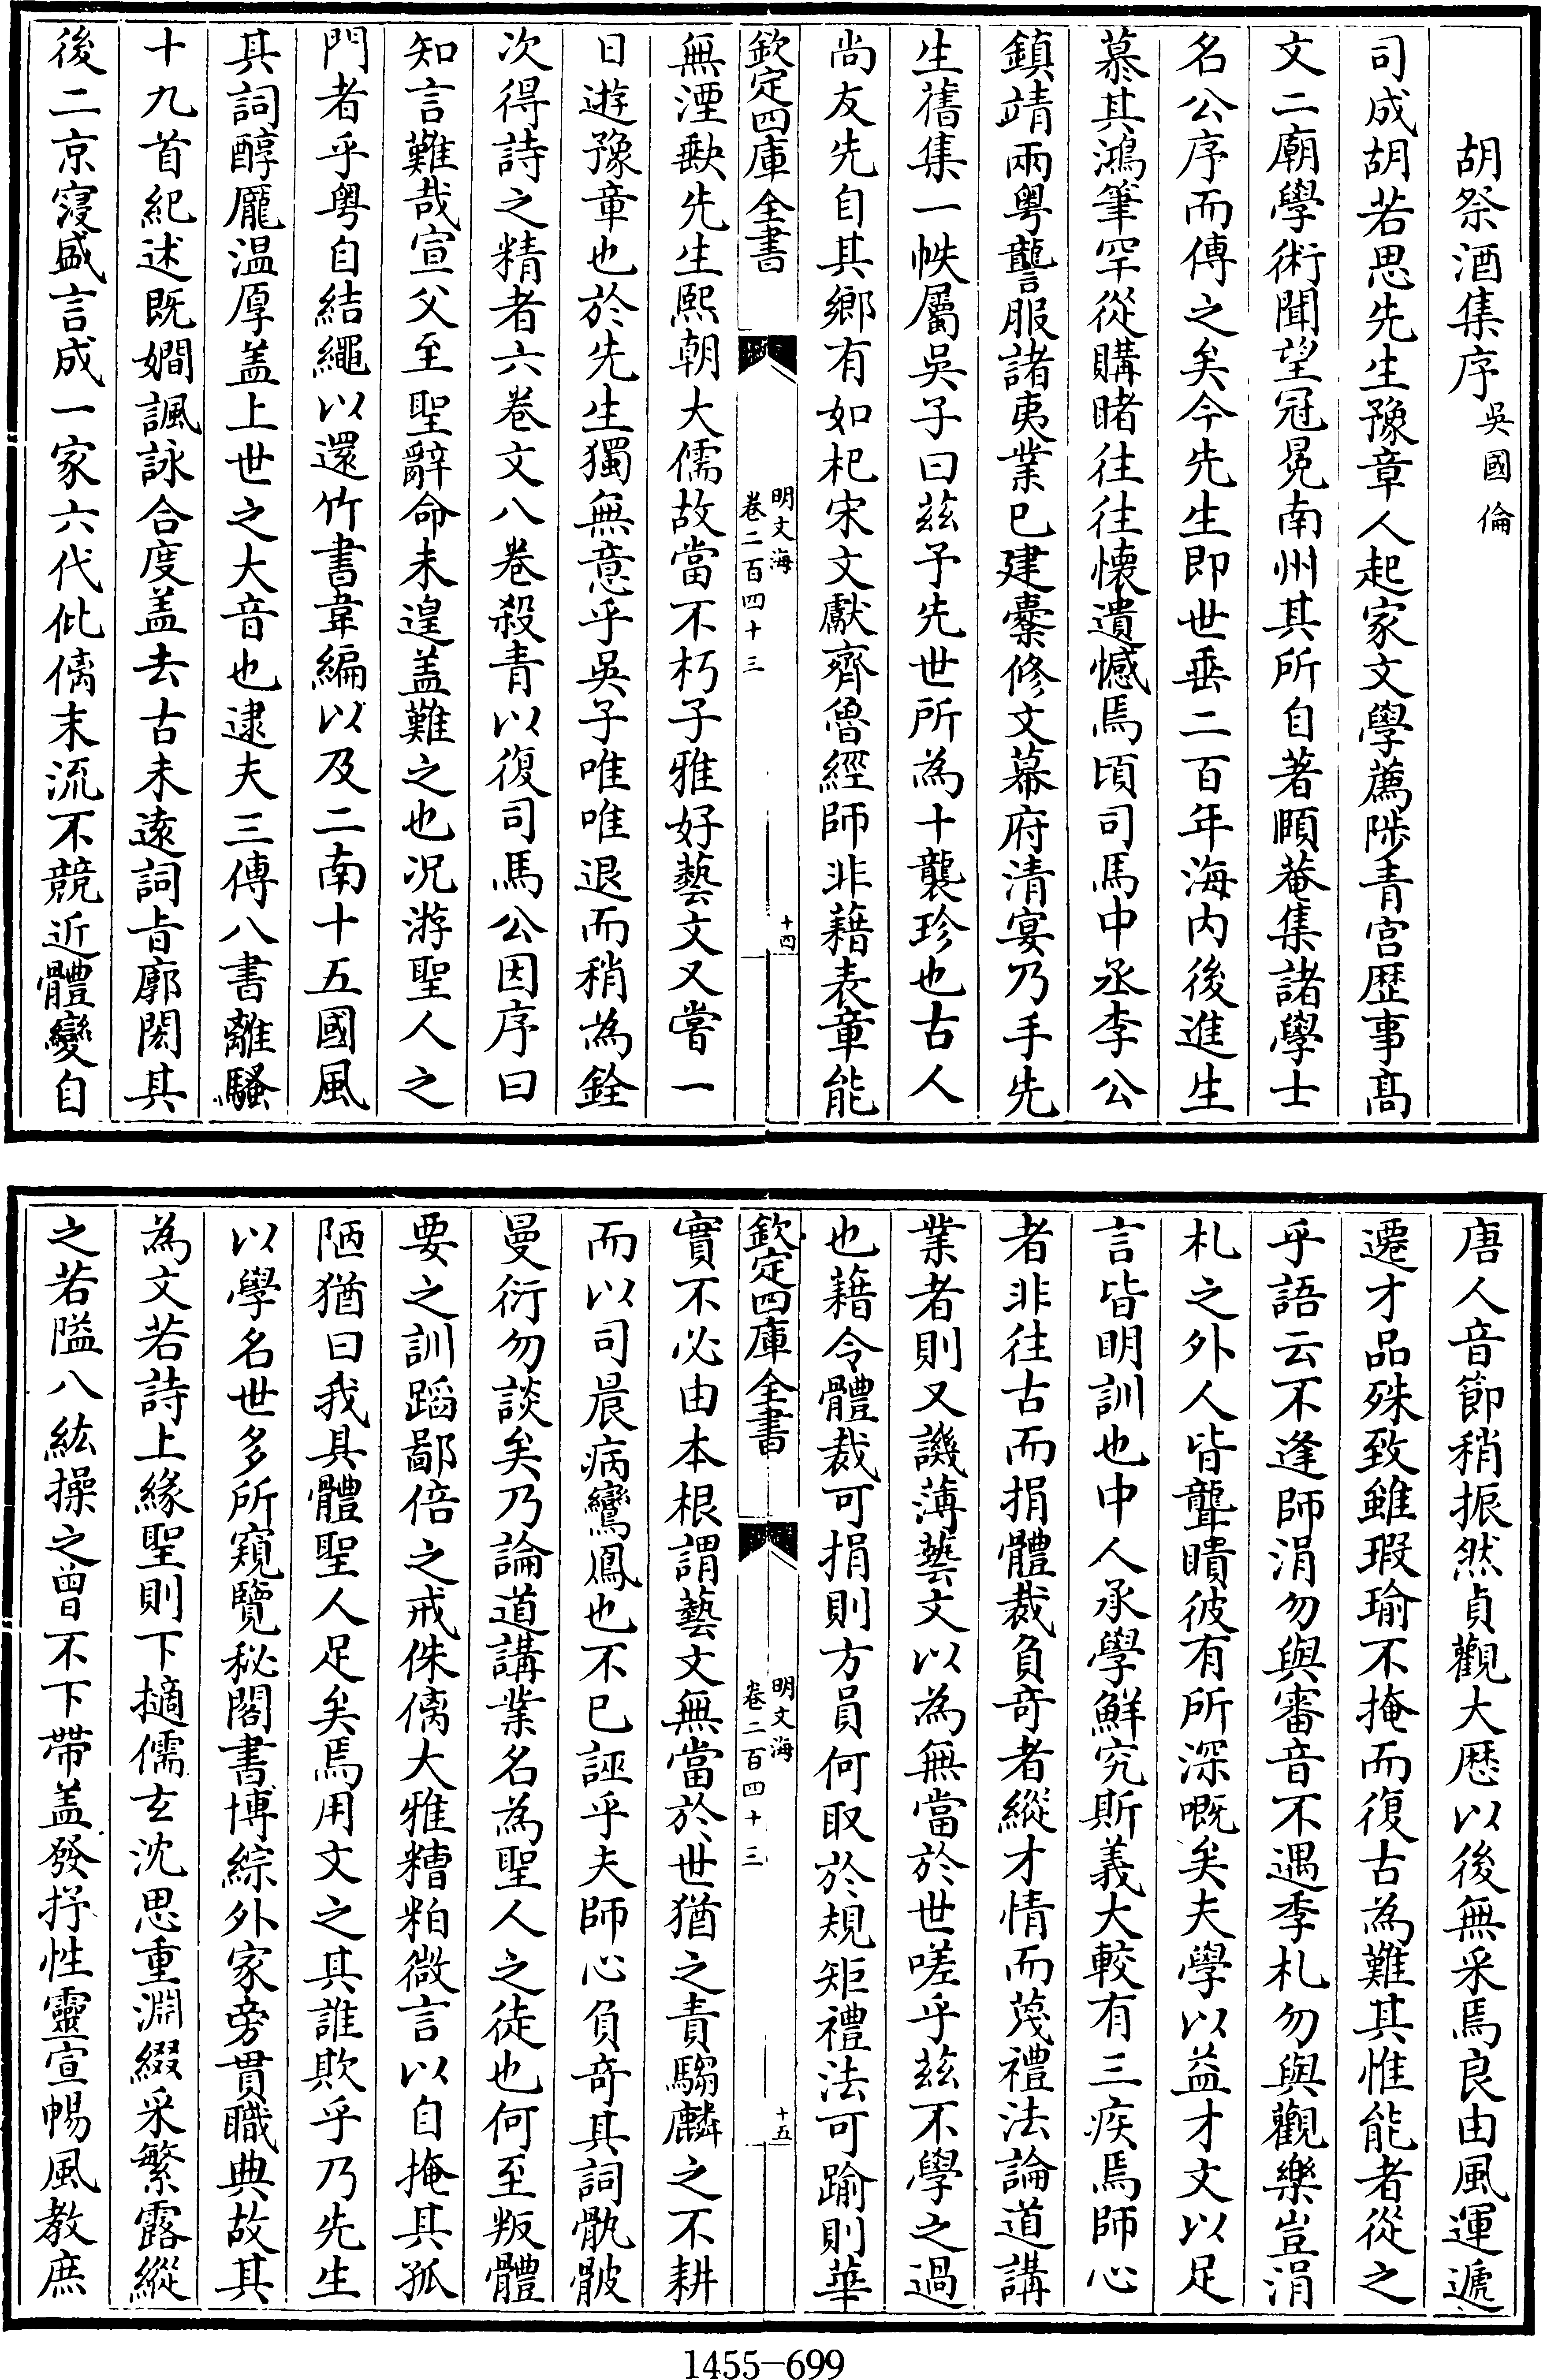 胡祭酒集序吳國倫
司成胡若思先生豫章人起家文學薦陟青宮歴事髙
文二廟學術聞望冠冕南州其所自著頤菴集諸學士
名公序而傳之矣今先生即世垂二百年海内後進生
慕其鴻筆罕從購睹往往懐遺憾焉頃司馬中丞李公
鎮靖兩粤讋服諸夷業已建櫜修文幕府清宴乃手先
生舊集一帙屬吳子曰兹予先世所為十襲珍也古人
尚友先自其鄉有如杞宋文獻齊魯經師非藉表章能
欽定四庫全書
明文海
卷二百四十三
十四
無湮歝先生熙朝大儒故當不朽子雅好藝文又嘗一
日遊豫章也於先生獨無意乎吳子唯唯退而稍為銓
次得詩之精者六卷文八卷殺青以復司馬公因序曰
知言難哉宣父至聖辭命未遑盖難之也况游聖人之
門者乎粤自結繩以還竹書韋編以及二南十五國風
其詞醇龎温厚盖上世之大音也逮夫三傳八書離騷
十九首紀述既嫺諷詠合度盖去古未逺詞㫖廓閎其
後二京寖盛言成一家六代仳㒧末流不競近體變自
唐人音節稍振然貞觀大歴以後無采焉良由風運遞
遷才品殊致雖瑕瑜不掩而復古為難其惟能者從之
乎語云不逢師涓勿與審音不遇季札勿與觀樂豈涓
札之外人皆聾瞶彼有所深嘅矣夫學以益才文以足
言皆明訓也中人承學鮮究斯義大較有三疾焉師心
者非往古而捐體裁負竒者縱才情而蔑禮法論道講
業者則又譏薄藝文以為無當於世嗟乎兹不學之過
也藉令體裁可捐則方員何取於規矩禮法可踰則華
欽定四庫全書
明文海
卷二百四十三
十五
實不必由本根謂藝文無當於世猶之責騶麟之不耕
而以司晨病鸞鳳也不已誣乎夫師心負竒其詞骫骳
曼衍勿談矣乃論道講業名為聖人之徒也何至叛體
要之訓蹈鄙倍之戒侏㒧大雅糟粕微言以自掩其孤
陋猶曰我具體聖人足矣焉用文之其誰欺乎乃先生
以學名世多所窺覽秘閣書博綜外家旁貫職典故其
為文若詩上緣聖則下擿儒玄沈思重淵綴采繁露縱
之若隘八紘操之曾不下帶盖發抒性靈宣暢風教庶
1455-699